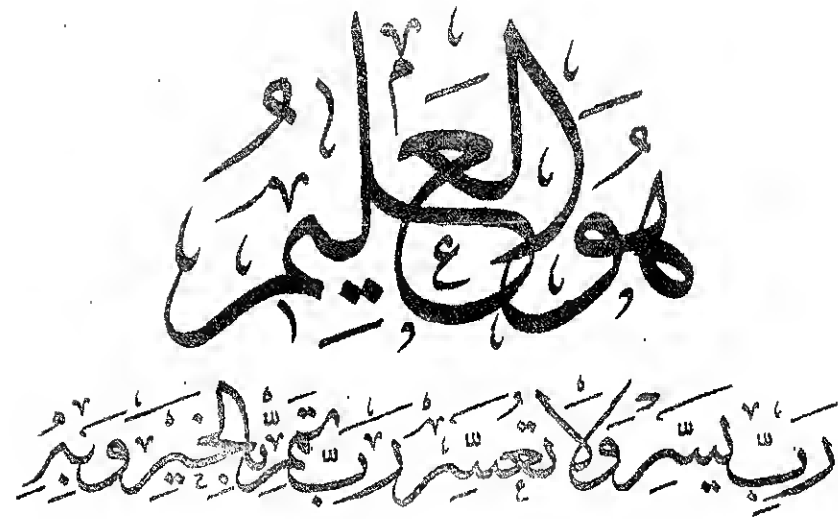 هُوَ الْعَلِيمُ
رَبِّ يَسِّرْ وَلَا تُعَسِّرْ رَبِّ تَمِّمْ بِالْخَيْرِ